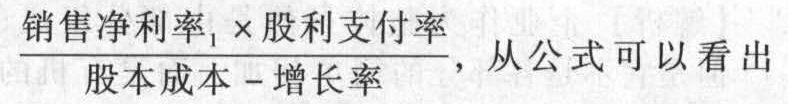 销售净利率₁ × 股利支付率
股本成本 - 增长率
，从公式可以看出